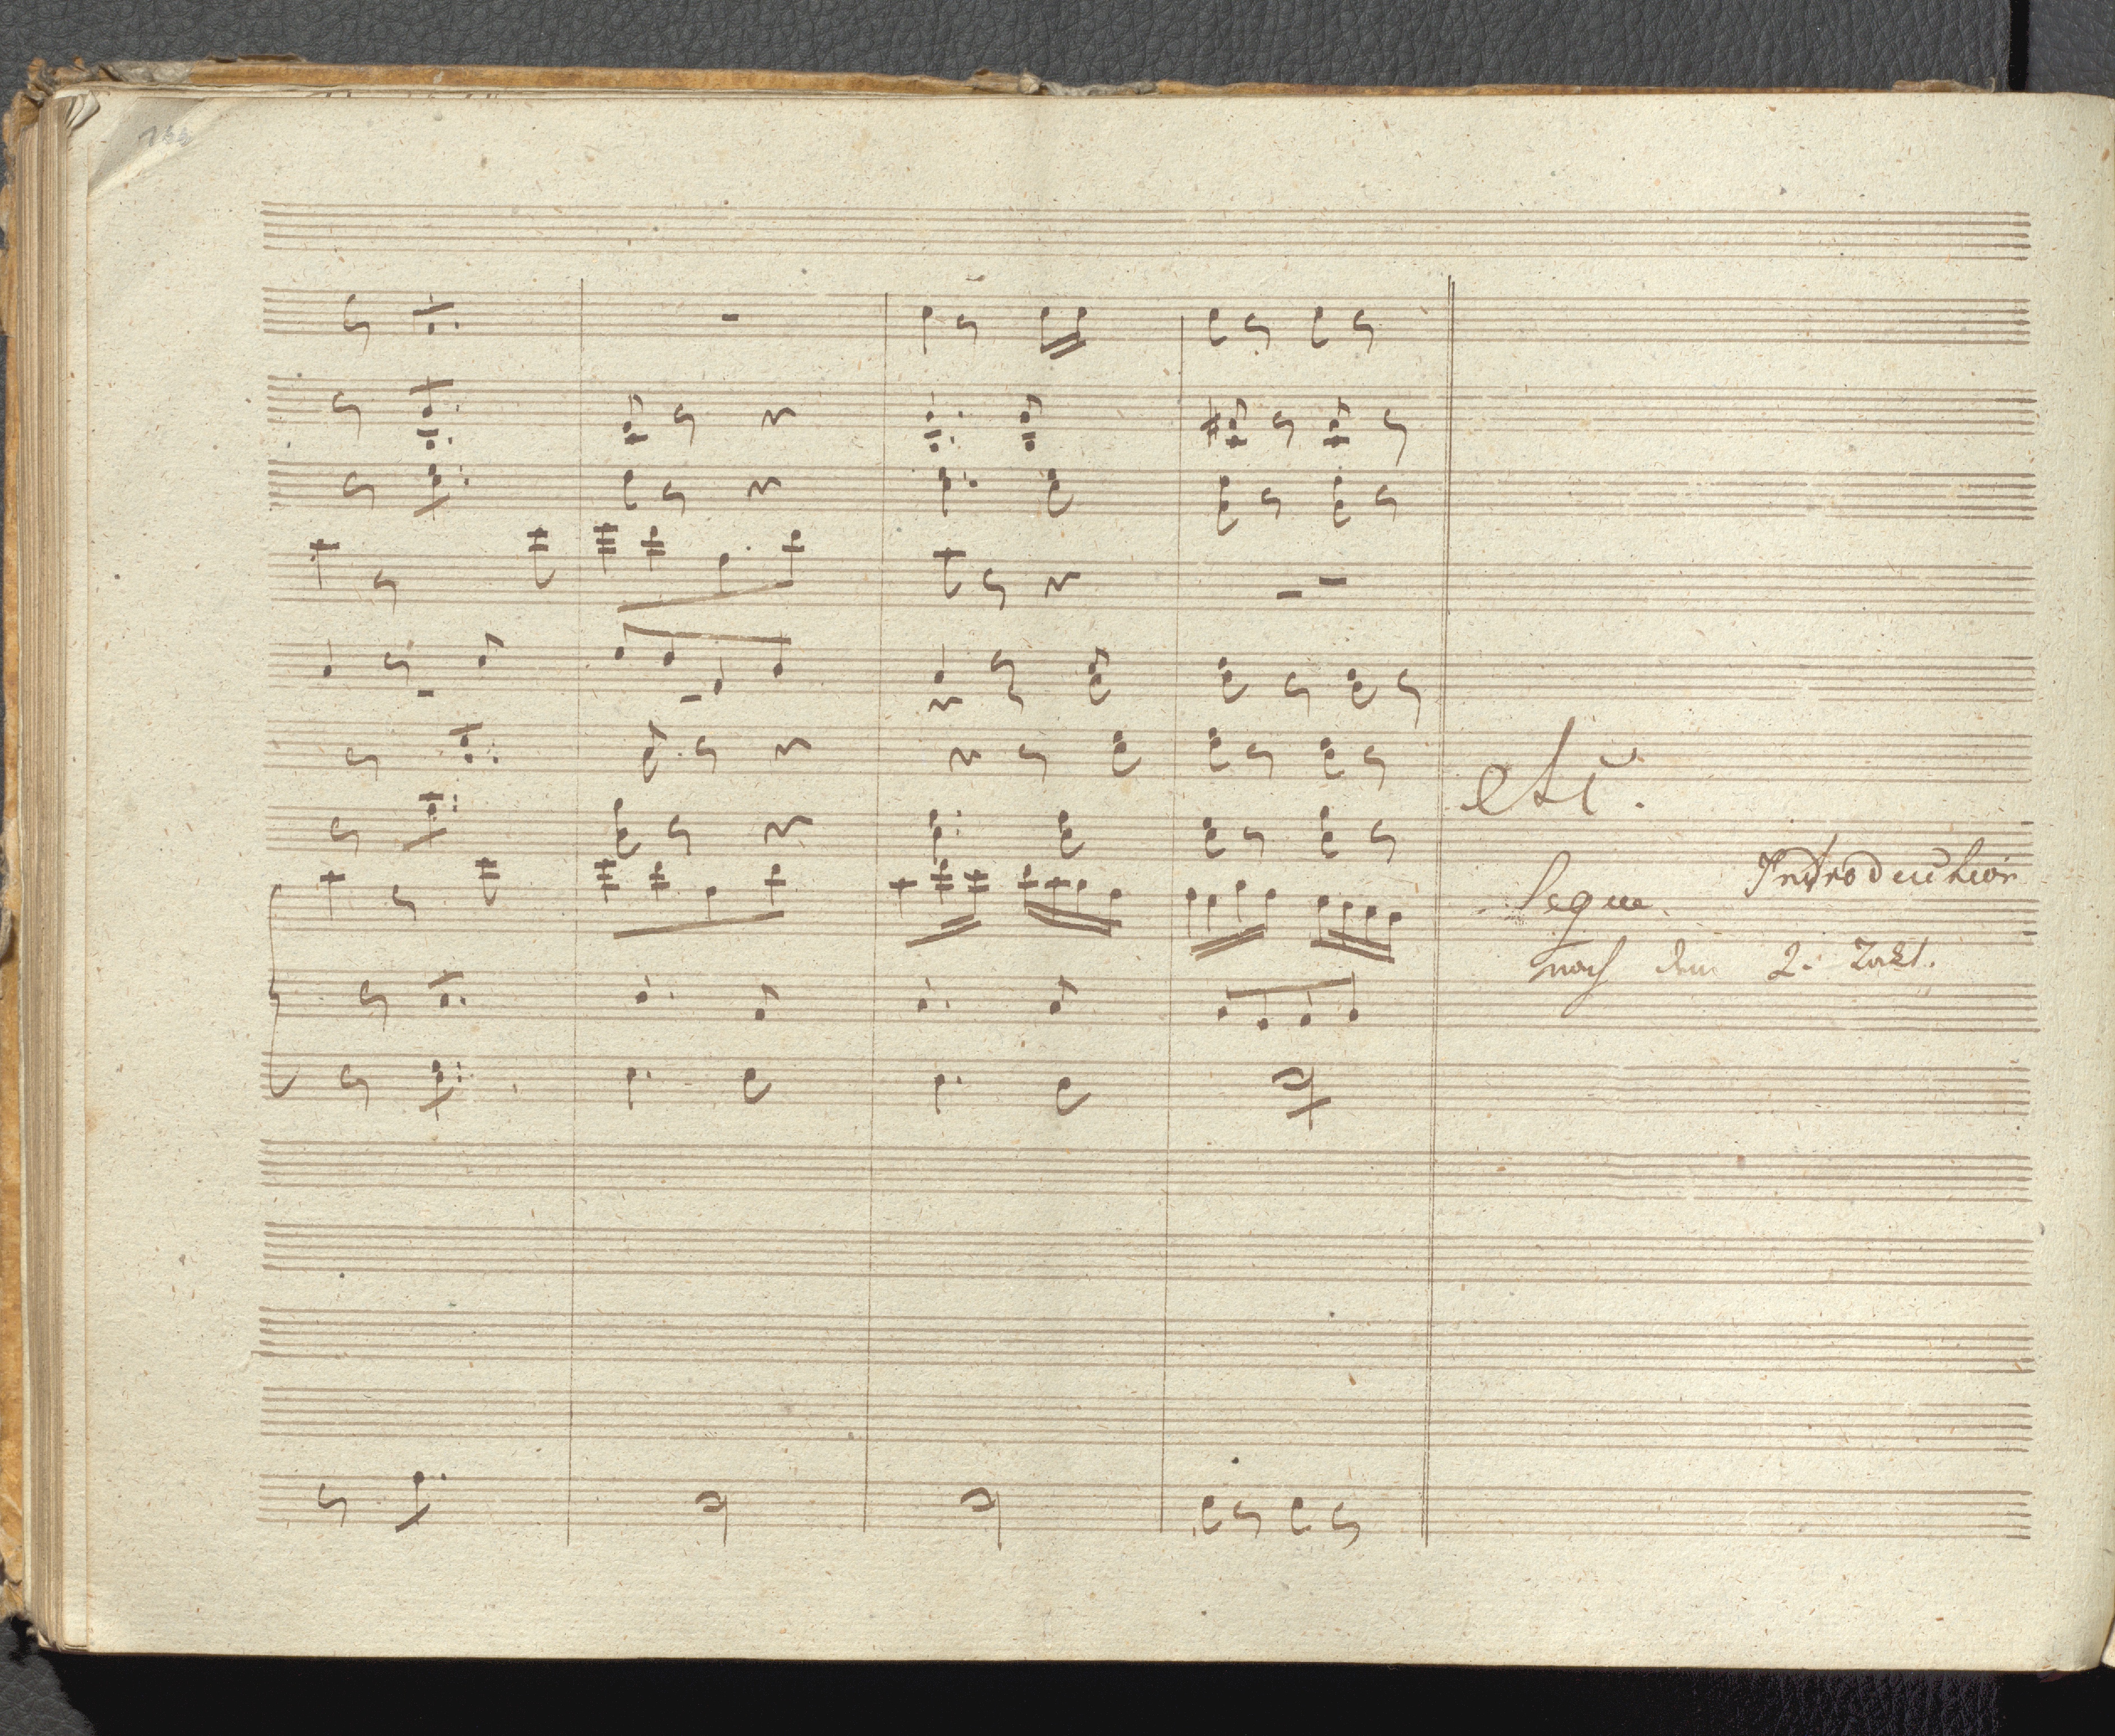 etc.
Segue Introduction
nach dem 2. Takt.